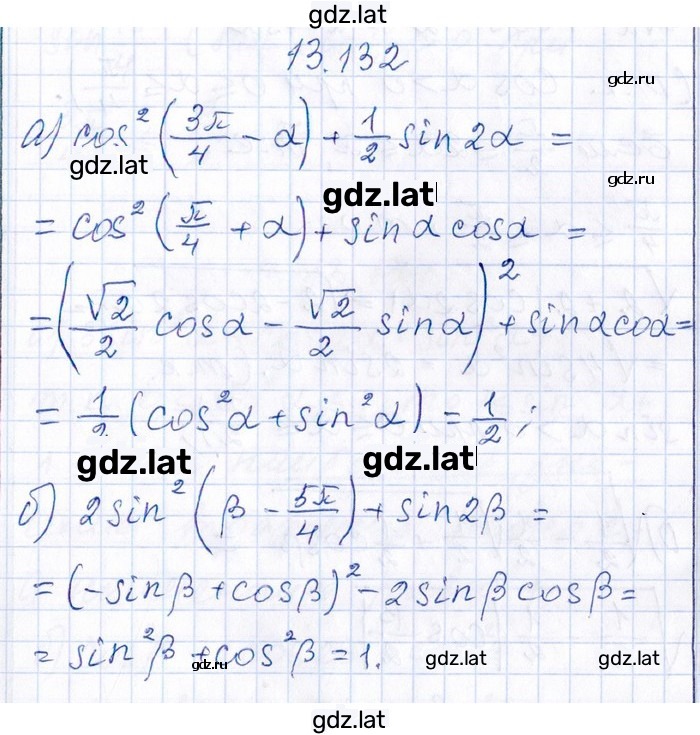 gdz.lat
13.132
gdz.ru
а) cos²(3π/4 − α) + 1/2 sin 2α =
gdz.lat
gdz.ru
gdz.lat
= cos²(π/4 + α) + sin α cos α =
= (√2/2 cos α − √2/2 sin α)² + sin α coα =
= 1/2 (cos²α + sin²α) = 1/2 ;
gdz.lat
gdz.lat
б) 2 sin²(β − 5π/4) + sin 2β =
= (−sin β + cos β)² − 2 sin β cos β =
= sin²β + cos²β = 1.
gdz.ru
gdz.lat
gdz.lat
gdz.lat